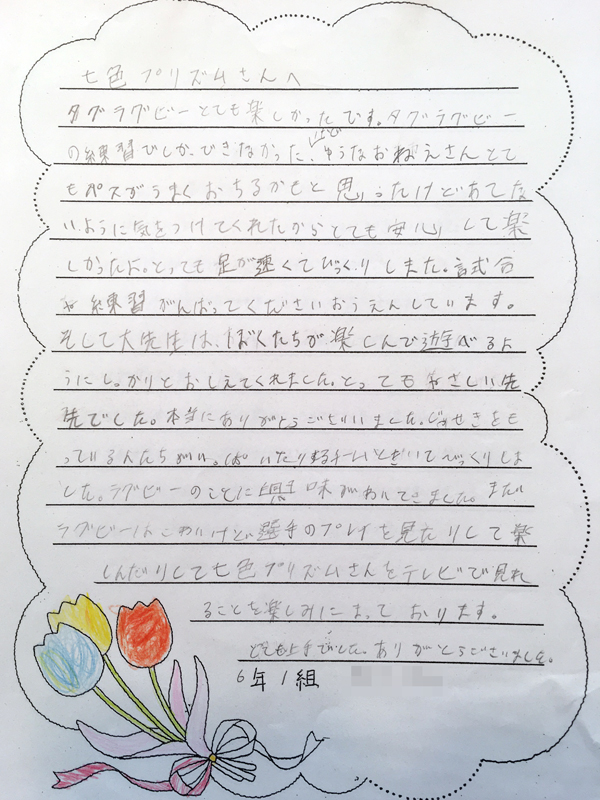 七色プリズムさんへ
タグラグビーとても楽しかったです。タグラグビー
の練習でしか、できなかった、けど そうなおねえさんとて
もパスがうまくおちるかもと思ったけどあてな
いように気をつけてくれたからとても安心して楽
しかったよ。とっても足が速くてびっくりしました。試合
や練習がんばってくださいおうえんしています。
そして大先生は、ぼくたちが楽しんで遊べるよ
うにしっかりとおしえてくれました。とってもやさしい先
先でした。本当にありがとうございました。じっせきをも
っている人たちがいっぱいいたりするチームときいてびっくりしま
した。ラグビーのことに興味がわいてきました。まだ
ラグビーはこわいけど選手のプレイを見たりして楽
しんだりして七色プリズムさんをテレビで見れ
ることを楽しみにまっております。
とても上手でした。ありがとうございました。
6年1組